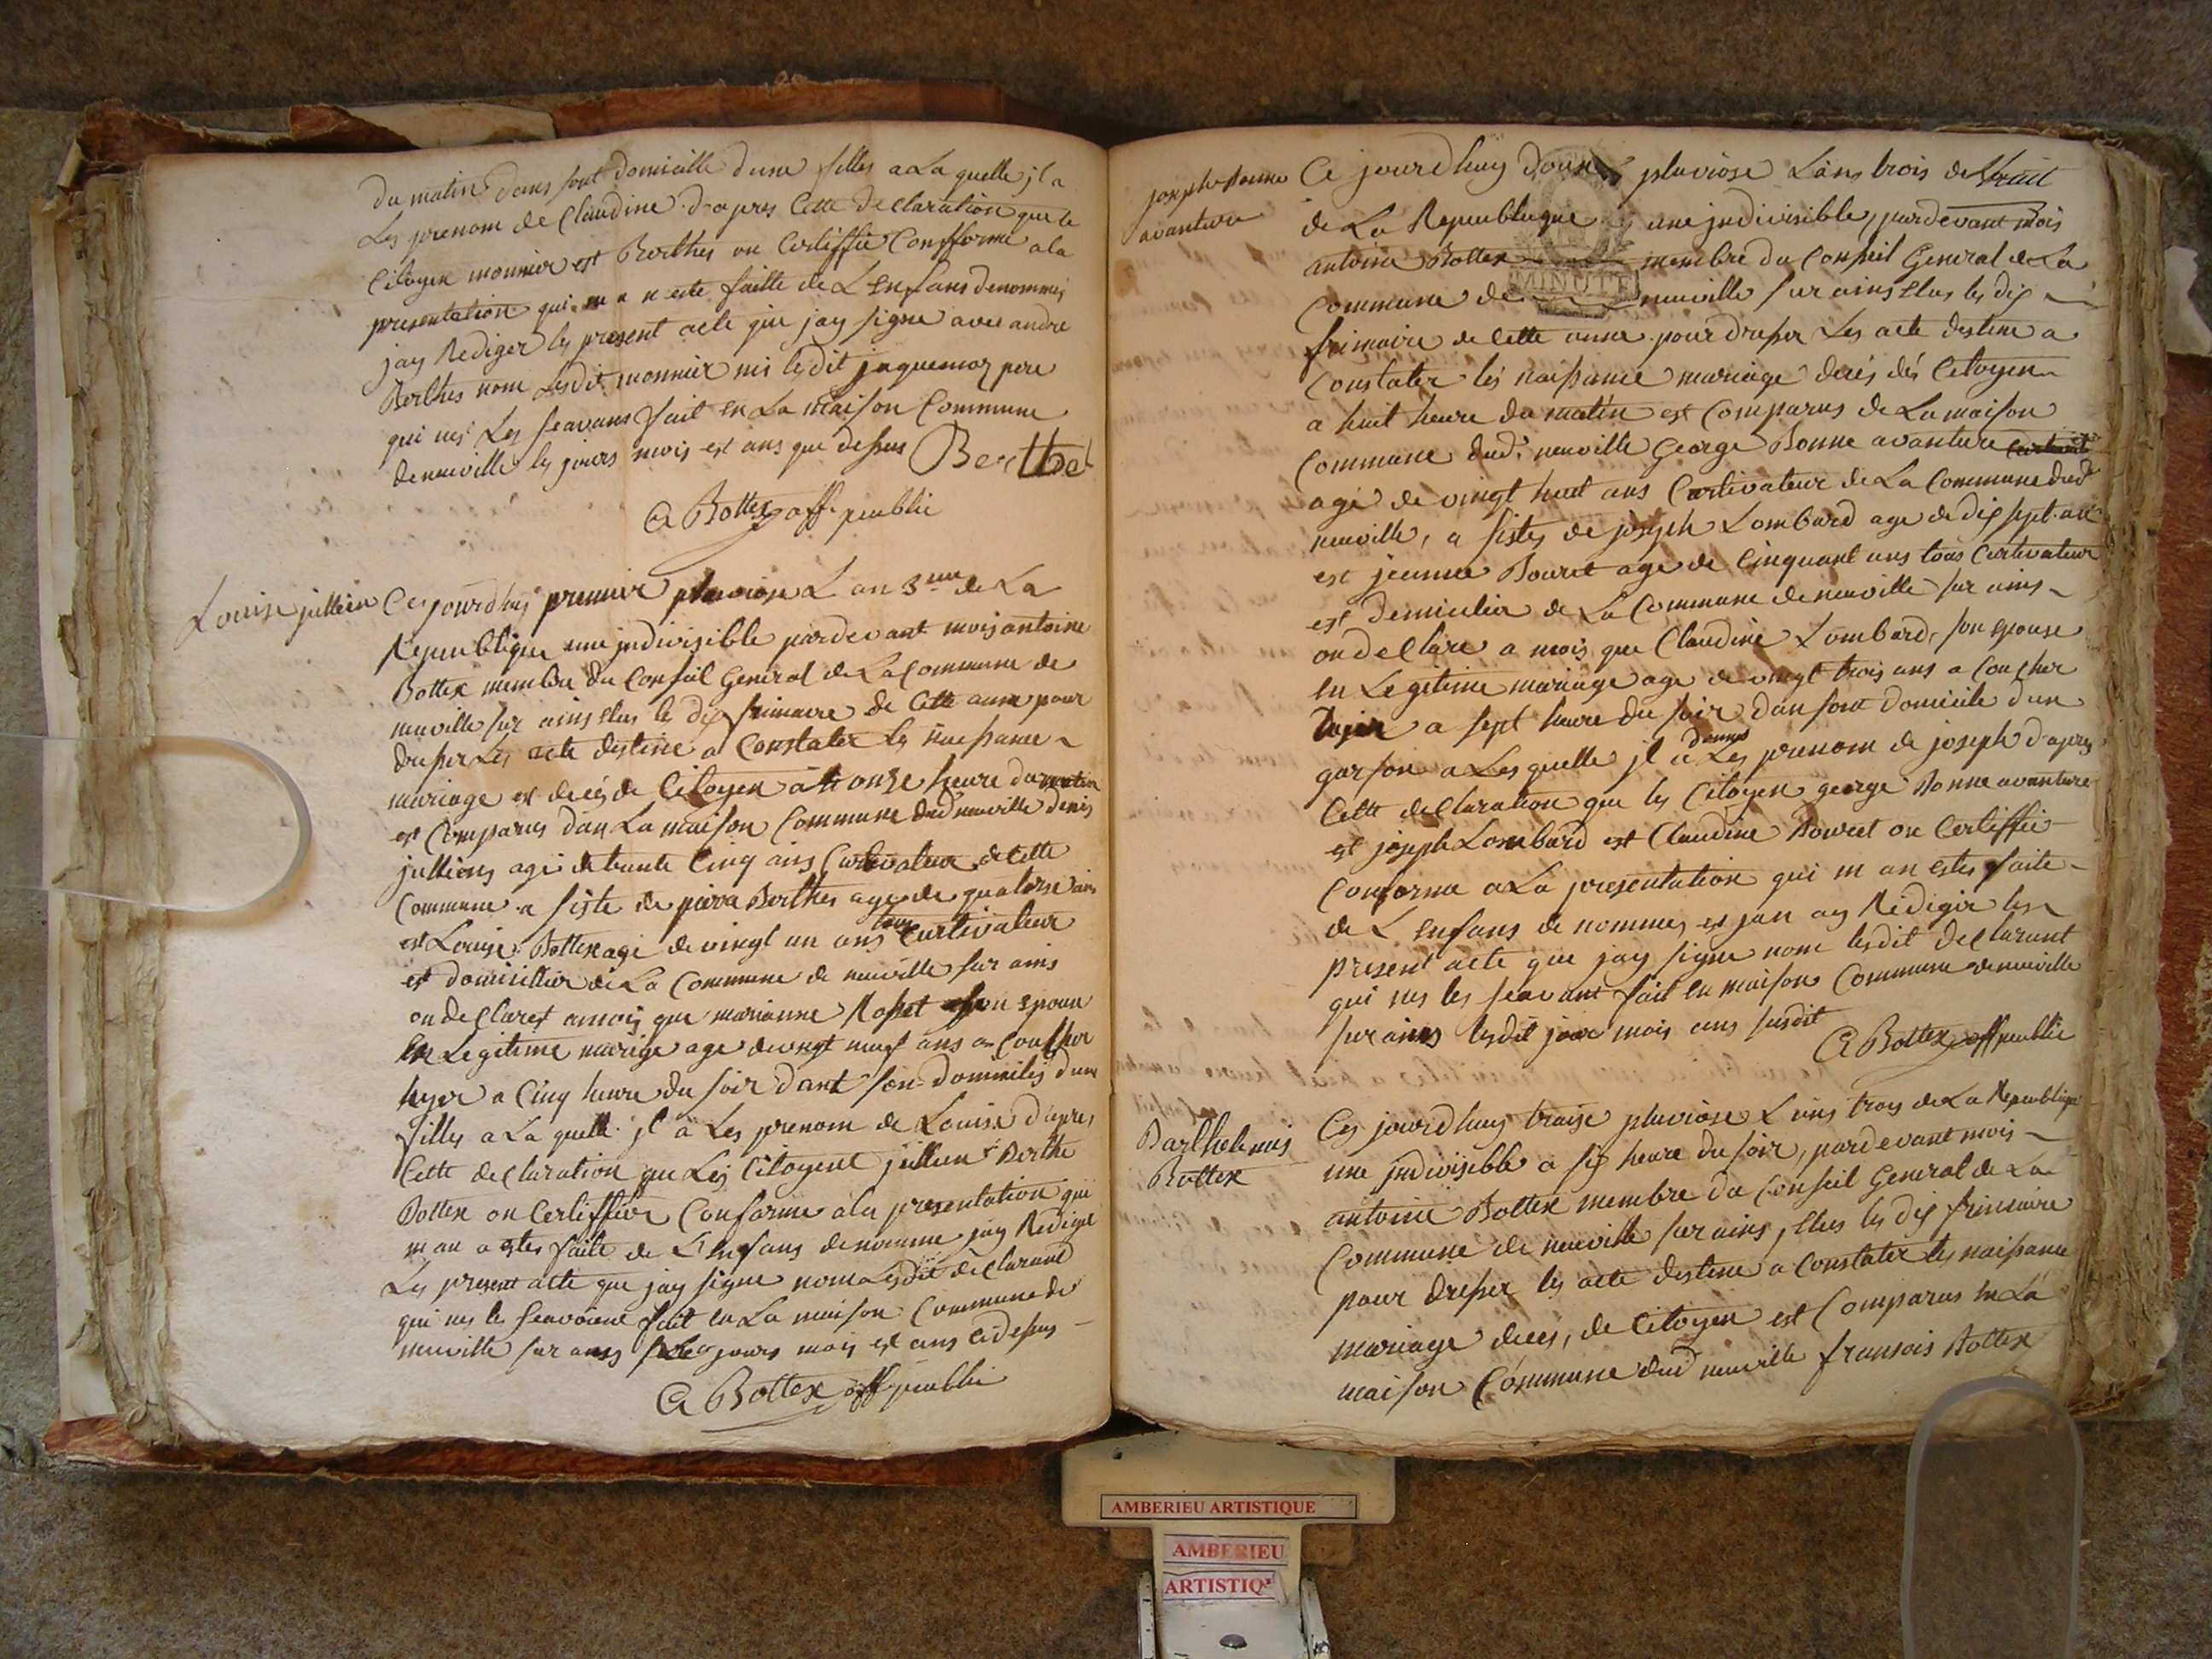 du matin dans sont domicille dune filles a La quelle jl a
Les prenom de Claudine d-apres Cette declaration que le
Citoyen monnier est Berthes on Certiffie Confforme a la
presentation qui m a n este faitte de L Enfans denommes
jay Rediger les present acte que jay signe avec andre
Berthes nom Lesdit monnier ni lesdit jaquemoz pere
qui nes Les seavans fait en La maison Commune
de neuville les jours mois est ans que dessus Berthet
A Bottex off. peublic
Louise jullien
Ces jourdhuy premier pluviose L an 3.me de La
Republique une jndivisible pardevant mois antoine
Bottex membre du Conseil General de La Commune de
neuville sur ains elus le dix frimaire de Cette anne pour
dresser Les acte destine a Constater les naissance
mariage est deces de Citoyen a onze heure du matin
est Comparus dan La maison Commune dud neuville denis
julliens age de trante Cinq ans Curtivateur de Cette
Commune a siste de piera Berthes age de quatorse ans
est Louise Bottex age de vingt un ans tous Curtivateur
est domicillier de La Commune de neuville sur ains
on declaret a mois que marianne Rosset son epouse
En Legitime mariage age de vingt neuf ans a Coucher
hyer a Cinq heure du soir dant son domiciles dune
filles a La quelle jl a Les prenom de Louise d'apres
Cette declaration que Les Citoyent jullien Berthe
Bottex on Certiffier Conforme a la presentation qui
m an a estes faite de L Enfans denomme jay Rediger
Les present acte que jay signe nom Lesdit declarant
qui nes les seavoient fait en La maison Commune de
neuville sur ains les jours mois est ans cidessus
A Bottex off peublic
joseph bonne
avanture
Ce jourdhuy douze pluviose Lans trois de
de La Republique une jndivisible, pardevant mois
antoine Bottex membre du Conseil General de La
MINUTE
Commune de neuville sur ains Elus les dix
frimaire de Cette anne pour dresser Les acte destine a
Constater les naissance mariage deces des Citoyen
a huit heure du matin est Comparus de La maison
Commune dud. neuville George Bonne avanture
age de vingt huit ans Curtivateur de La Commune dud
neuville, a sistes de joseph Lombard age de dix sept ans
est jeanne Bouret age de Cinquant ans tous Curtivateur
est domicilier de La Commune de neuville sur ains
on declare a mois que Claudine Lombard, son epouse
En Legitime mariage age de vingt trois ans a Coucher
hyer a sept heure du soir dan sont domicile d un
garson a Les quelle jl a donnes Les prenom de joseph d-apres
Cette declaration que les Citoyen george Bonne avanture
est joseph Lombard est Claudine Bouret on Certiffie
Conforme a La presentation qui m an estes faite
de L Enfans de nommes est jan ay Rediger les
present acte que jay signe nom lesdit declarant
qui nes les seavant fait en maison Commune de neuville
sur ains lesdit jour mois ans susdit
A Bottex off peublic
Barthelemis
Bottex
Ces jourdhuy traise pluviose L ans trois de La Republique
une jndivisible a six heure du soir, pardevant mois
antoine Bottex membre du Conseil General de La
Commune de neuville sur ains, Elus les dix frimaire
pour dresser les acte destine a Constater les naissance
mariage deces, de Citoyen est Comparus En La
maison Commune dud neuville fransois Bottex
AMBERIEU ARTISTIQUE
AMBERIEU
ARTISTIQ